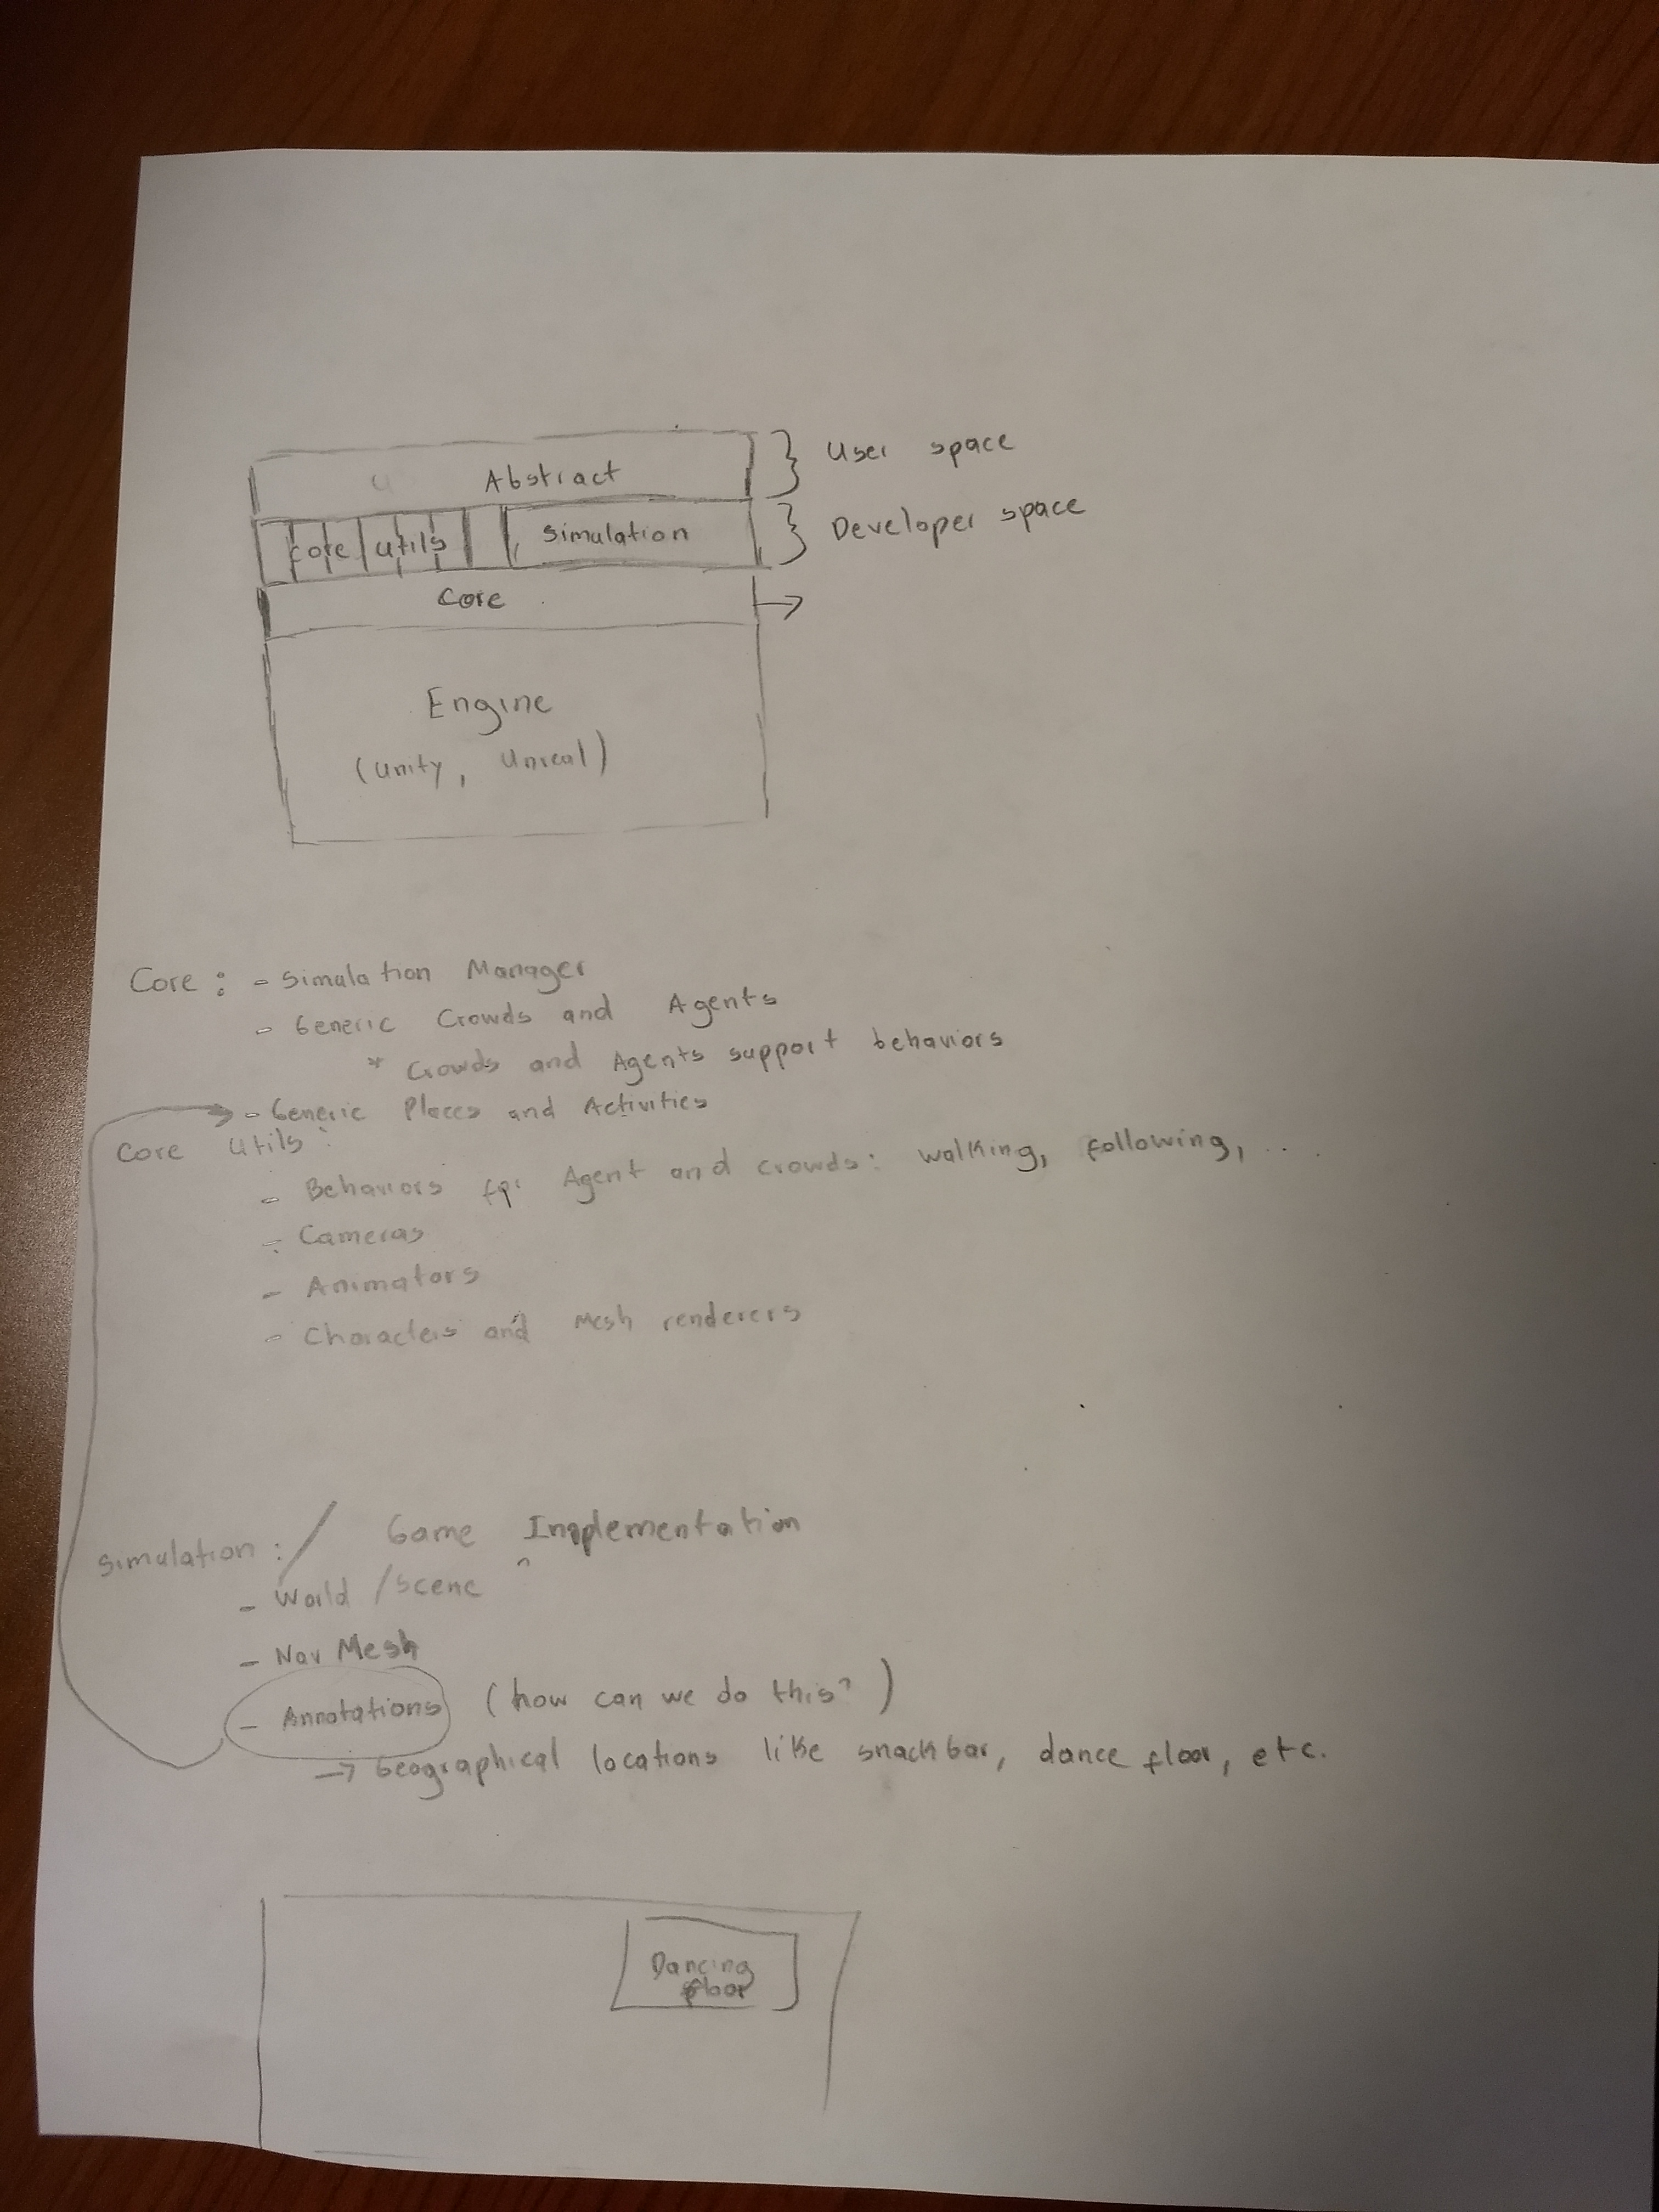 Abstract
User space
core utils
Simulation
Developer space
Core
Engine
(Unity, Unreal)
Core : - Simulation Manager
- Generic Crowds and Agents
* Crowds and Agents support behaviors
- Generic Places and Activities
Core Utils :
- Behaviors for Agent and crowds: walking, following, ...
- Cameras
- Animators
- Characters and Mesh renderers
Simulation : / Game Implementation
- World / Scene
- Nav Mesh
- Annotations (how can we do this?)
→ Geographical locations like snack bar, dance floor, etc.
Dancing
floor